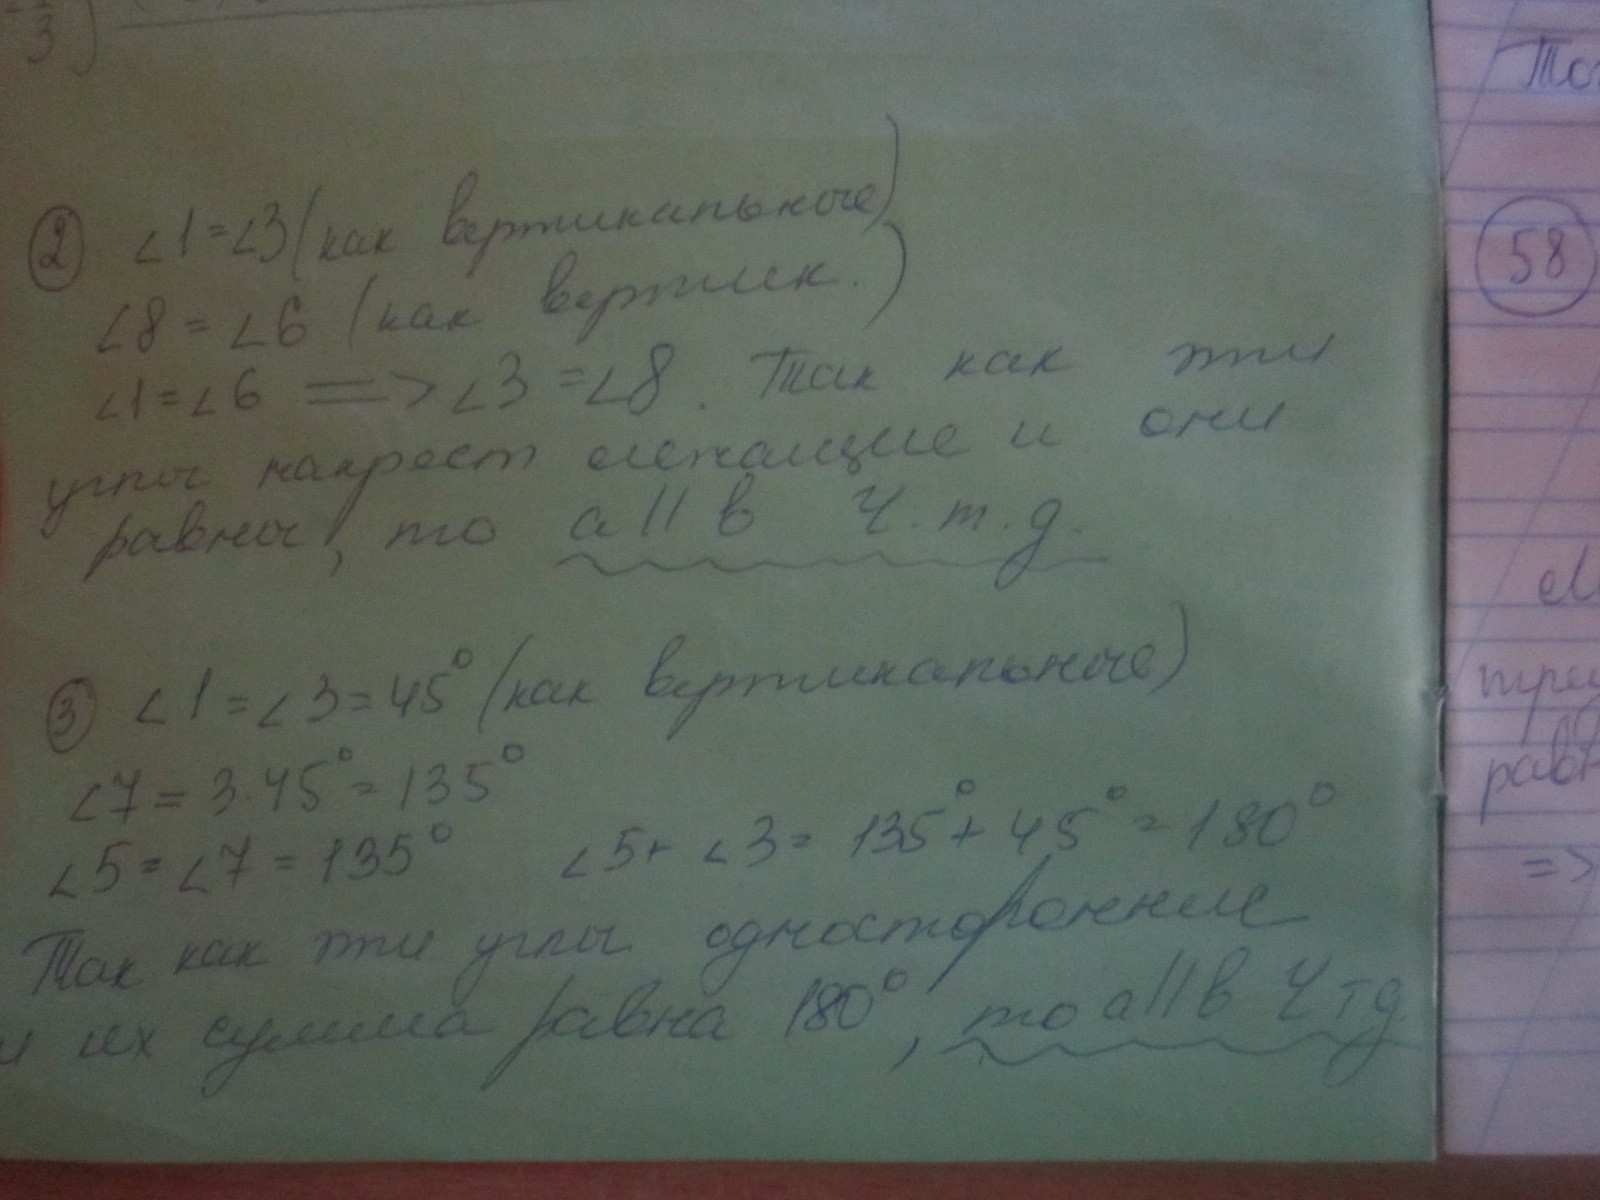 3)
② ∠1=∠3 (как вертикальные)
∠8 = ∠6 (как вертик.)
∠1=∠6 => ∠3 =∠8. Так как эти
углы накрест лежащие и они
равны, то a || в Ч.т.д.
③ ∠1=∠3=45° (как вертикальные)
∠7 = 3·45° = 135°
∠5 = ∠7 = 135° ∠5+ ∠3 = 135° + 45° = 180°
Так как эти углы односторонние
и их сумма равна 180°, то a || в Чтд
58
равн
=>